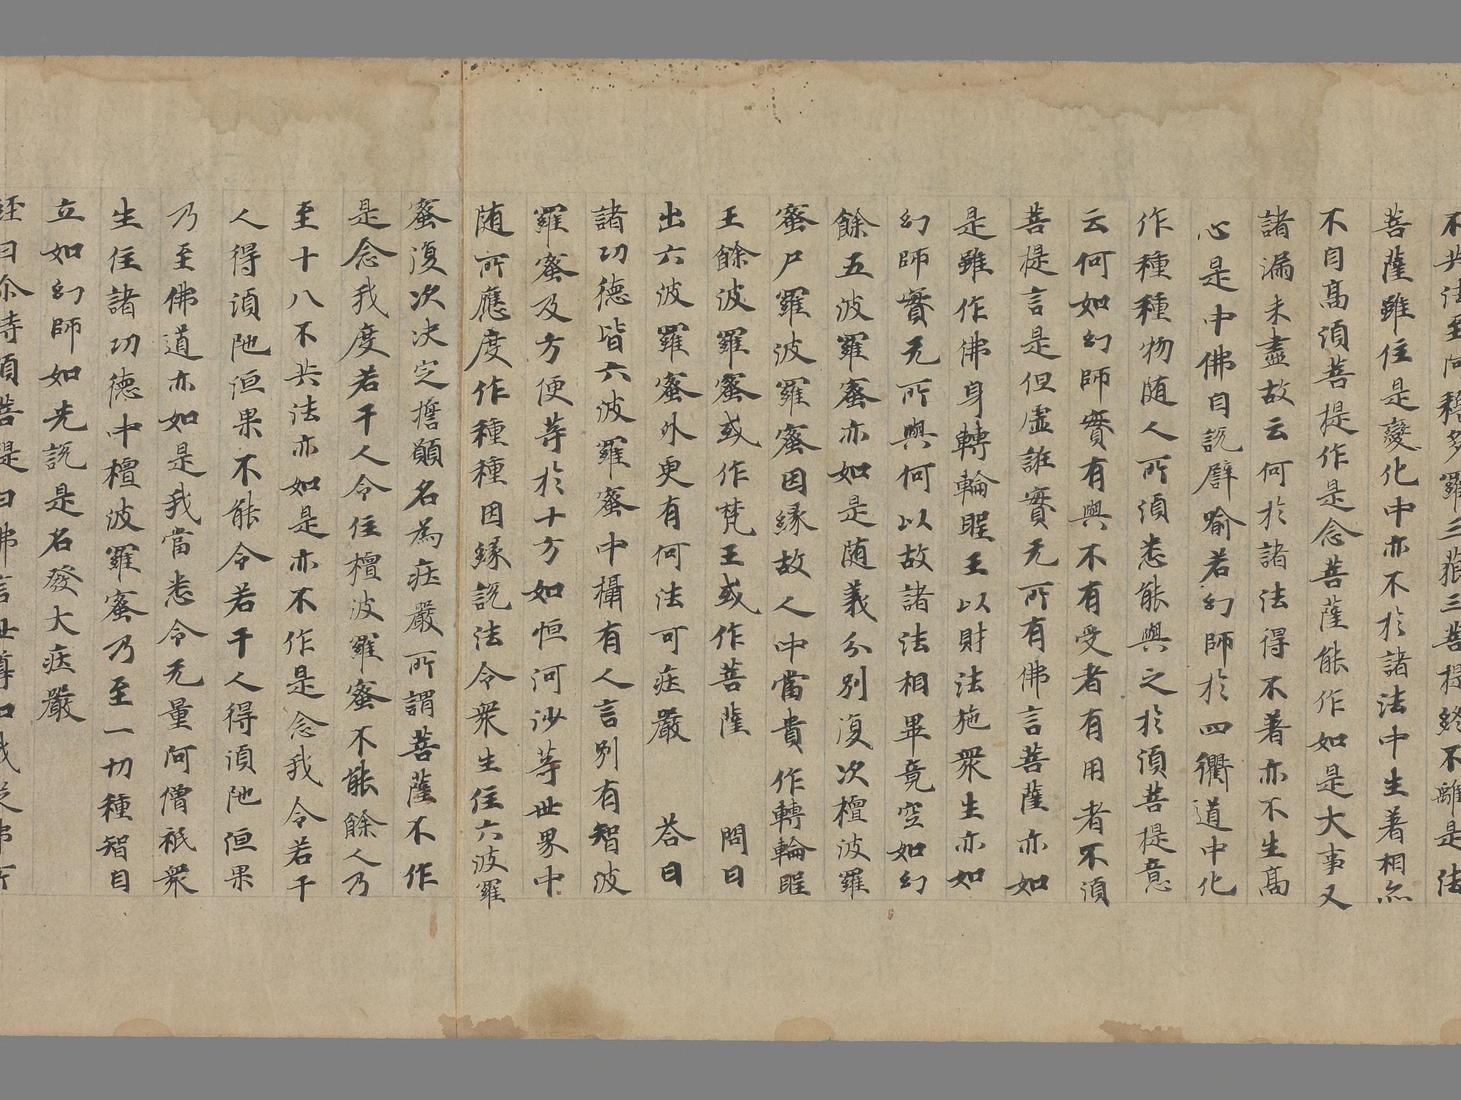 不共法至阿耨多羅三藐三菩提終不離是法
菩薩雖住是變化中亦不於諸法中生著相亦
不自高須菩提作是念菩薩能作如是大事又
諸漏未盡故云何於諸法得不著亦不生高
心是中佛自說譬喻若幻師於四衢道中化
作種種物随人所須悉能與之於須菩提意
云何如幻師實有與不有受者有用者不須
菩提言是但虛誑實无所有佛言菩薩亦如
是雖作佛身轉輪聖王以財法施衆生亦如
幻師實无所與何以故諸法相畢竟空如幻
餘五波羅蜜亦如是随義分別復次檀波羅
蜜尸羅波羅蜜因緣故人中當貴作轉輪聖
王餘波羅蜜或作梵王或作菩薩　問曰
出六波羅蜜外更有何法可庄嚴　荅曰
諸功德皆六波羅蜜中攝有人言別有智波
羅蜜及方便等於十方如恒河沙等世界中
随所應度作種種因緣說法令衆生住六波羅
蜜復次決定擔願名為庄嚴所謂菩薩不作
是念我度若干人令住檀波羅蜜不能餘人乃
至十八不共法亦如是亦不作是念我令若干
人得須陁洹果不能令若干人得須陁洹果
乃至佛道亦如是我當悉令无量阿僧祇衆
生住諸功德中檀波羅蜜乃至一切種智自
立如幻師如先說是名發大庄嚴
經曰尒時須菩提白佛言世尊如我從佛所